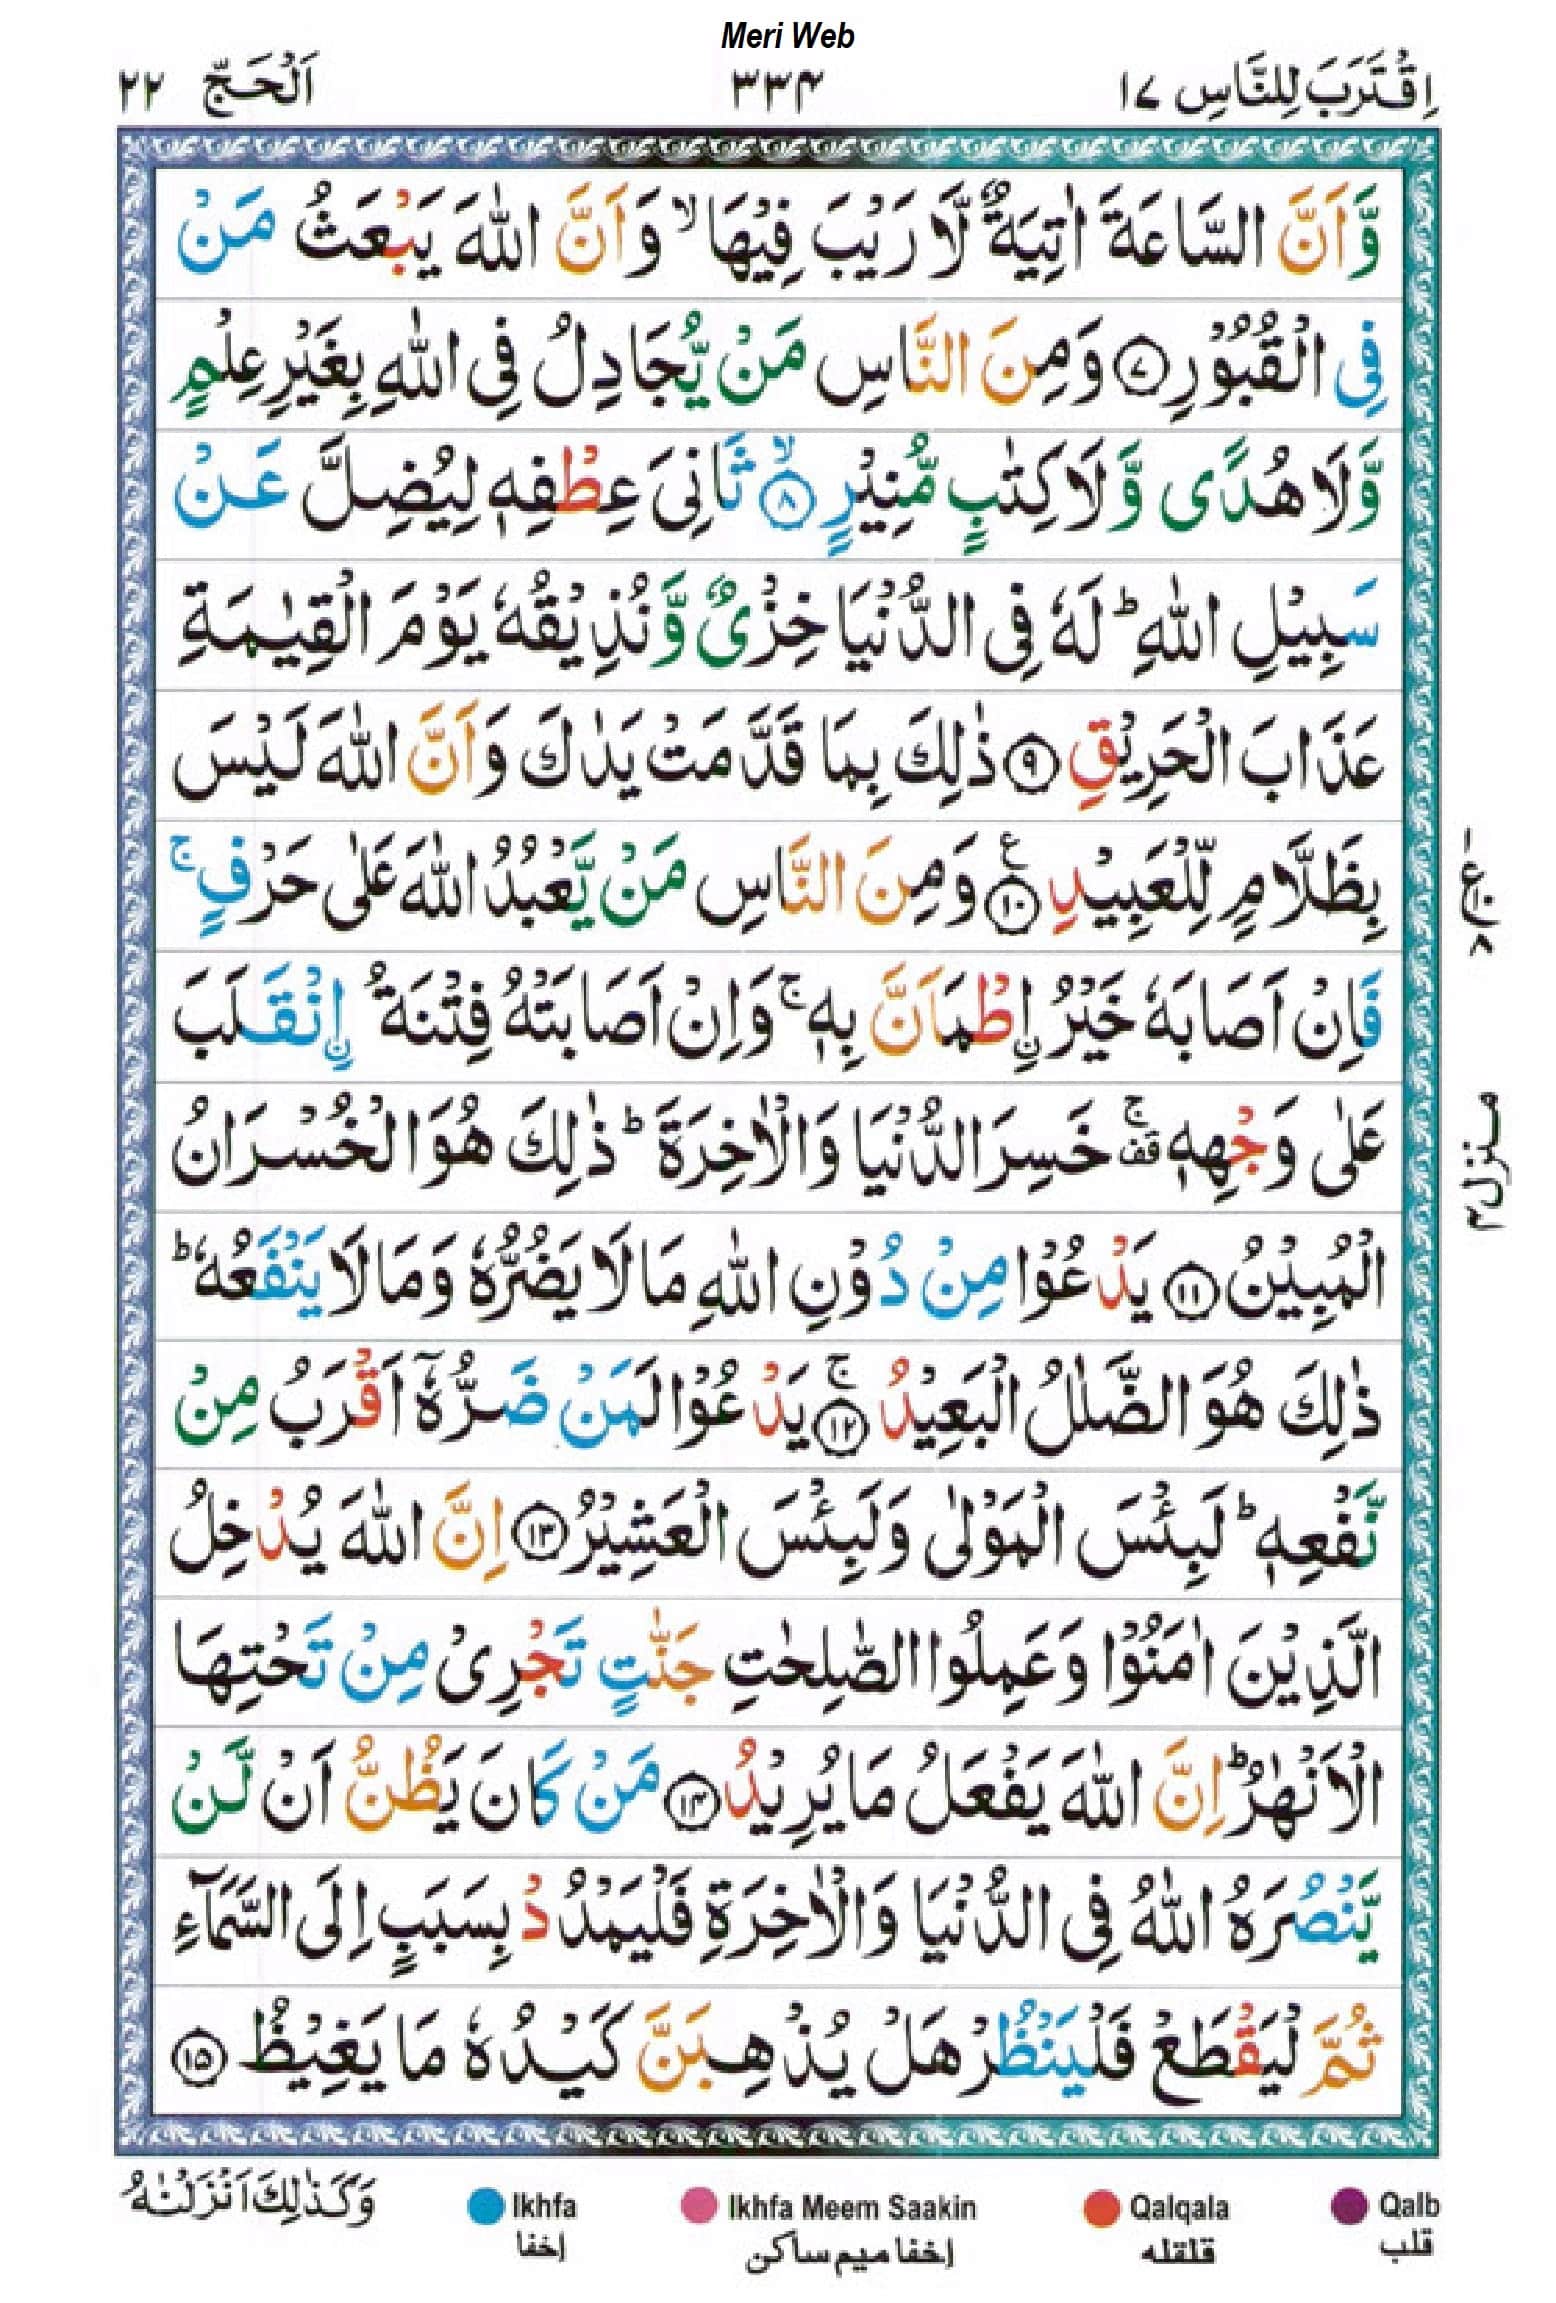 Meri Web
اِقْتَرَبَ لِلنَّاسِ ۱۷
۳۳۴
اَلْحَجّ ۲۲
وَّاَنَّ السَّاعَةَ اٰتِيَةٌ لَّا رَيْبَ فِيْهَا ۙ وَاَنَّ اللّٰهَ يَبْعَثُ مَنْ
فِى الْقُبُوْرِ ﴿۷﴾ وَمِنَ النَّاسِ مَنْ يُّجَادِلُ فِى اللّٰهِ بِغَيْرِ عِلْمٍ
وَّلَا هُدًى وَّلَا كِتٰبٍ مُّنِيْرٍ ۙ ﴿۸﴾ ثَانِىَ عِطْفِهٖ لِيُضِلَّ عَنْ
سَبِيْلِ اللّٰهِ ؕ لَهٗ فِى الدُّنْيَا خِزْىٌ وَّنُذِيْقُهٗ يَوْمَ الْقِيٰمَةِ
عَذَابَ الْحَرِيْقِ ﴿۹﴾ ذٰلِكَ بِمَا قَدَّمَتْ يَدٰكَ وَاَنَّ اللّٰهَ لَيْسَ
بِظَلَّامٍ لِّلْعَبِيْدِ ﴿۱۰﴾ ع وَمِنَ النَّاسِ مَنْ يَّعْبُدُ اللّٰهَ عَلٰى حَرْفٍ ۚ
فَاِنْ اَصَابَهٗ خَيْرُ ۨاطْمَاَنَّ بِهٖ ۚ وَاِنْ اَصَابَتْهُ فِتْنَةُ ۨانْقَلَبَ
عَلٰى وَجْهِهٖ ۚ قف خَسِرَ الدُّنْيَا وَالْاٰخِرَةَ ؕ ذٰلِكَ هُوَ الْخُسْرَانُ
الْمُبِيْنُ ﴿۱۱﴾ يَدْعُوْا مِنْ دُوْنِ اللّٰهِ مَا لَا يَضُرُّهٗ وَمَا لَا يَنْفَعُهٗ ؕ
ذٰلِكَ هُوَ الضَّلٰلُ الْبَعِيْدُ ۚ ﴿۱۲﴾ يَدْعُوْا لَمَنْ ضَرُّهٗۤ اَقْرَبُ مِنْ
نَّفْعِهٖ ؕ لَبِئْسَ الْمَوْلٰى وَلَبِئْسَ الْعَشِيْرُ ﴿۱۳﴾ اِنَّ اللّٰهَ يُدْخِلُ
الَّذِيْنَ اٰمَنُوْا وَعَمِلُوا الصّٰلِحٰتِ جَنّٰتٍ تَجْرِىْ مِنْ تَحْتِهَا
الْاَنْهٰرُ ؕ اِنَّ اللّٰهَ يَفْعَلُ مَا يُرِيْدُ ﴿۱۴﴾ مَنْ كَانَ يَظُنُّ اَنْ لَّنْ
يَّنْصُرَهُ اللّٰهُ فِى الدُّنْيَا وَالْاٰخِرَةِ فَلْيَمْدُدْ بِسَبَبٍ اِلَى السَّمَآءِ
ثُمَّ لْيَقْطَعْ فَلْيَنْظُرْ هَلْ يُذْهِبَنَّ كَيْدُهٗ مَا يَغِيْظُ ﴿۱۵﴾
منزل۴
وَكَذٰلِكَ اَنْزَلْنٰهُ
Ikhfa
Ikhfa Meem Saakin
Qalqala
Qalb
إخفا
إخفا ميم ساكن
قلقله
قلب